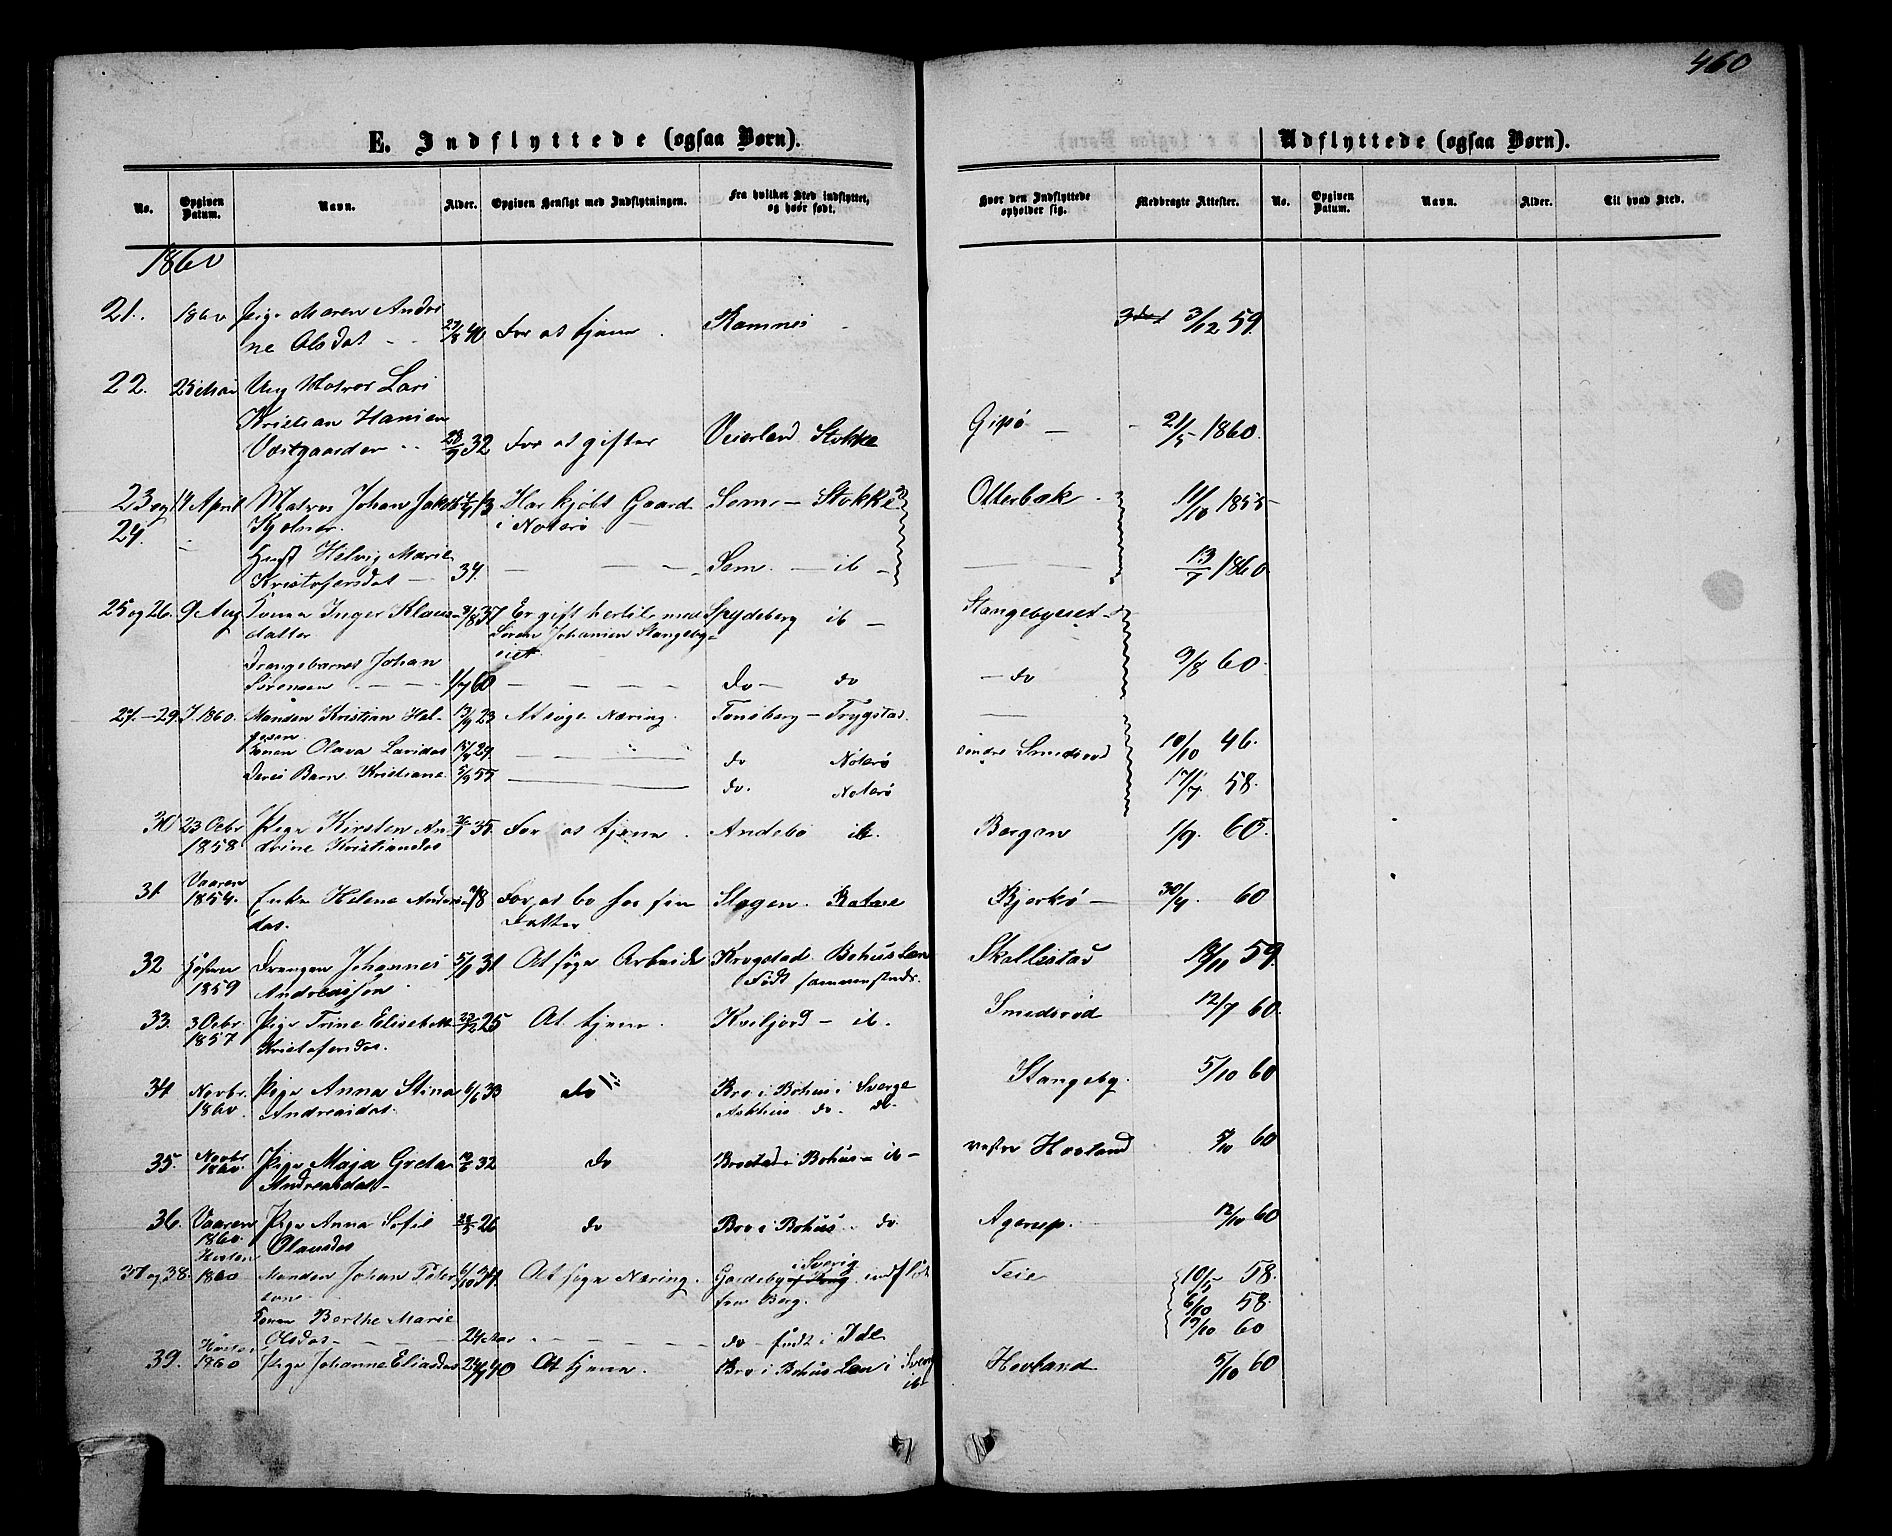 460
E. Indflyttede (ogsaa Børn).
Udflyttede (ogsaa Børn).
No. Opgiven Datum. Navn. Alder. Opgiven Hensigt med Indflytningen. Fra hvilket Sted indflyttet, og hvor født. Hvor den Indflyttede opholder sig. Medbragte Attester. No. Opgiven Datum. Navn. Alder. Til hvad Sted.
1860
21. 1860 Pige Maren Andri
ne Olsdat - - 29/8 40 For at tjene. Ramnes - 3/12 59.
22. 25 Mai Ung Matros Lars
Kristian Hansen
Vestgaarden - - 28/9 32 For at gifter Veierland Stokke Gipø - 21/5 1860.
23 og 14 April Matros Johan Jakob 13 Har kjöbt Gaard Sem - Stokke Otterbæk - 11/10 1855
24. i Noterø
Hust Helvig Marie
Kristofersdat - 34. - - - Sem. - ib - 13/7 1860.
25 og 26. 9 Aug Kona Inger Klaus- 9/8 37 Er gift hertil med Spydeberg ib - Stangebyeiet
datter Søren Johansen Stangeby-
eiet
Drengebarnet Johan
Sørensen - - - 1/7 60 - - - - do - do - do 9/8 60.
27. - 29. J. 1860. Manden Kristian Hel- 13/9 23 At søge Næring. Tønsberg - Trygstad.
gesen
Konen Olava Larsdat 29. - - do Noterø søndre Smedsrød 10/10 46.
deres Barn Kristiane 5/9 55 - do. Noterø 17/7 58.
30 23 Octbr Pige Kirsten An- 26/1 35. For at tjene. Andebø ib. Bergan 1/9. 60.
1858 drine Kristiansdat
31 Vaaren
1854. Enke Helene Anders- 78 For at bo hos sin Slagen. Ratme Bjerkø - 30/4. 60
dat. Datter
32 Høsten Drengen Johannes 5/1 31 At søge Arbeide Krogstad. Bohus Læn Skallestad 19/11 59.
1859 Andreassen Født sammensteds.
33. 3 Octbr. Pige Trine Elisabeth 22/12 25 At tjene. Kviljord - ib. Smedsrød 12/7 60.
1857 Kristofersdat.
34 Novbr. Pige Anna Stina 6/6 33 do Bro i Bohus i Sverge Stangeby. 5/10 60
1860. Andreasdat. do. do
35. Novbr
1860. Pige Maja Greta 19/6 32 do Brostad i Bohus - ib - vestre Hovland 5/10 60
Andreasdat -
36. Vaaren Pige Anna Sofie 28/3 26 do Bro i Bohus - do Agerup. 12/10 60
1860. Olausdat
Høsten
37 og 38. 1860 Manden Johan Peter 6/10 34 At søge Næring. Gaardeby i Sverig indflöt Teie 10/5 58.
sen fra Berg. 6/10 58.
Konen Berthe Marie
Olsdat - 24 Mar - - - - do - født i Ide 19/10 60
39. Høsten
1860 Pige Johanne Eliasdat 24/9 40 At tjene. Bro i Bohus Læn i Sverg Hovland 5/10 60
ib -